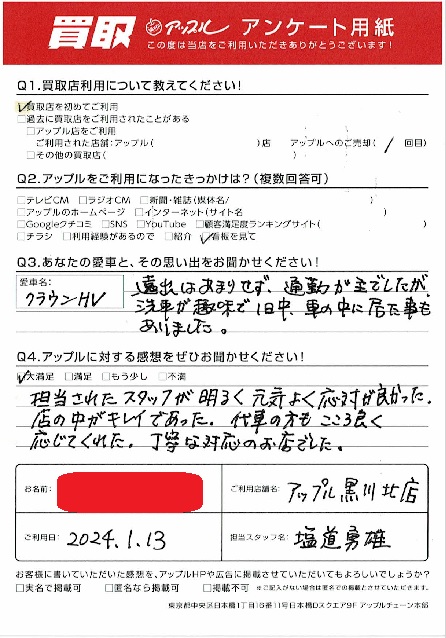 買取 アップル アンケート用紙
この度は当店をご利用いただきありがとうございます！
Q1.買取店利用について教えてください！
☑買取店を初めてご利用
□過去に買取店をご利用されたことがある
□アップル店をご利用
ご利用された店舗：アップル( )店 アップルへのご売却( 1 回目)
□その他の買取店( )
Q2.アップルをご利用になったきっかけは？(複数回答可)
□テレビCM □ラジオCM □新聞・雑誌(媒体名/ )
□アップルのホームページ □インターネット(サイト名 )
□Googleクチコミ □SNS □YouTube □顧客満足度ランキングサイト( )
□チラシ □利用経験があるので □紹介 ☑看板を見て
Q3.あなたの愛車と、その思い出をお聞かせください！
愛車名：
クラウンHV
遠出はあまりせず、通勤が主でしたが、
洗車が趣味で1日中、車の中に居た事も
ありました。
Q4.アップルに対する感想をぜひお聞かせください！
☑大満足 □満足 □もう少し □不満
担当されたスタッフが明るく元気よく応対が良かった。
店の中がキレイであった。代車の方もこころ良く
応じてくれた。丁寧な対応のお店でした。
お名前：
ご利用店舗名： アップル黒川北店
ご利用日： 2024.1.13
担当スタッフ名： 塩道勇雄
お客様に書いていただいた感想を、アップルHPや広告に掲載させていただいてもよろしいでしょうか？
□実名で掲載可 □匿名なら掲載可 □掲載不可 ※ご記入がない場合は匿名での掲載とさせていただきます。
東京都中央区日本橋1丁目16番11号日本橋Dスクエア9F アップルチェーン本部